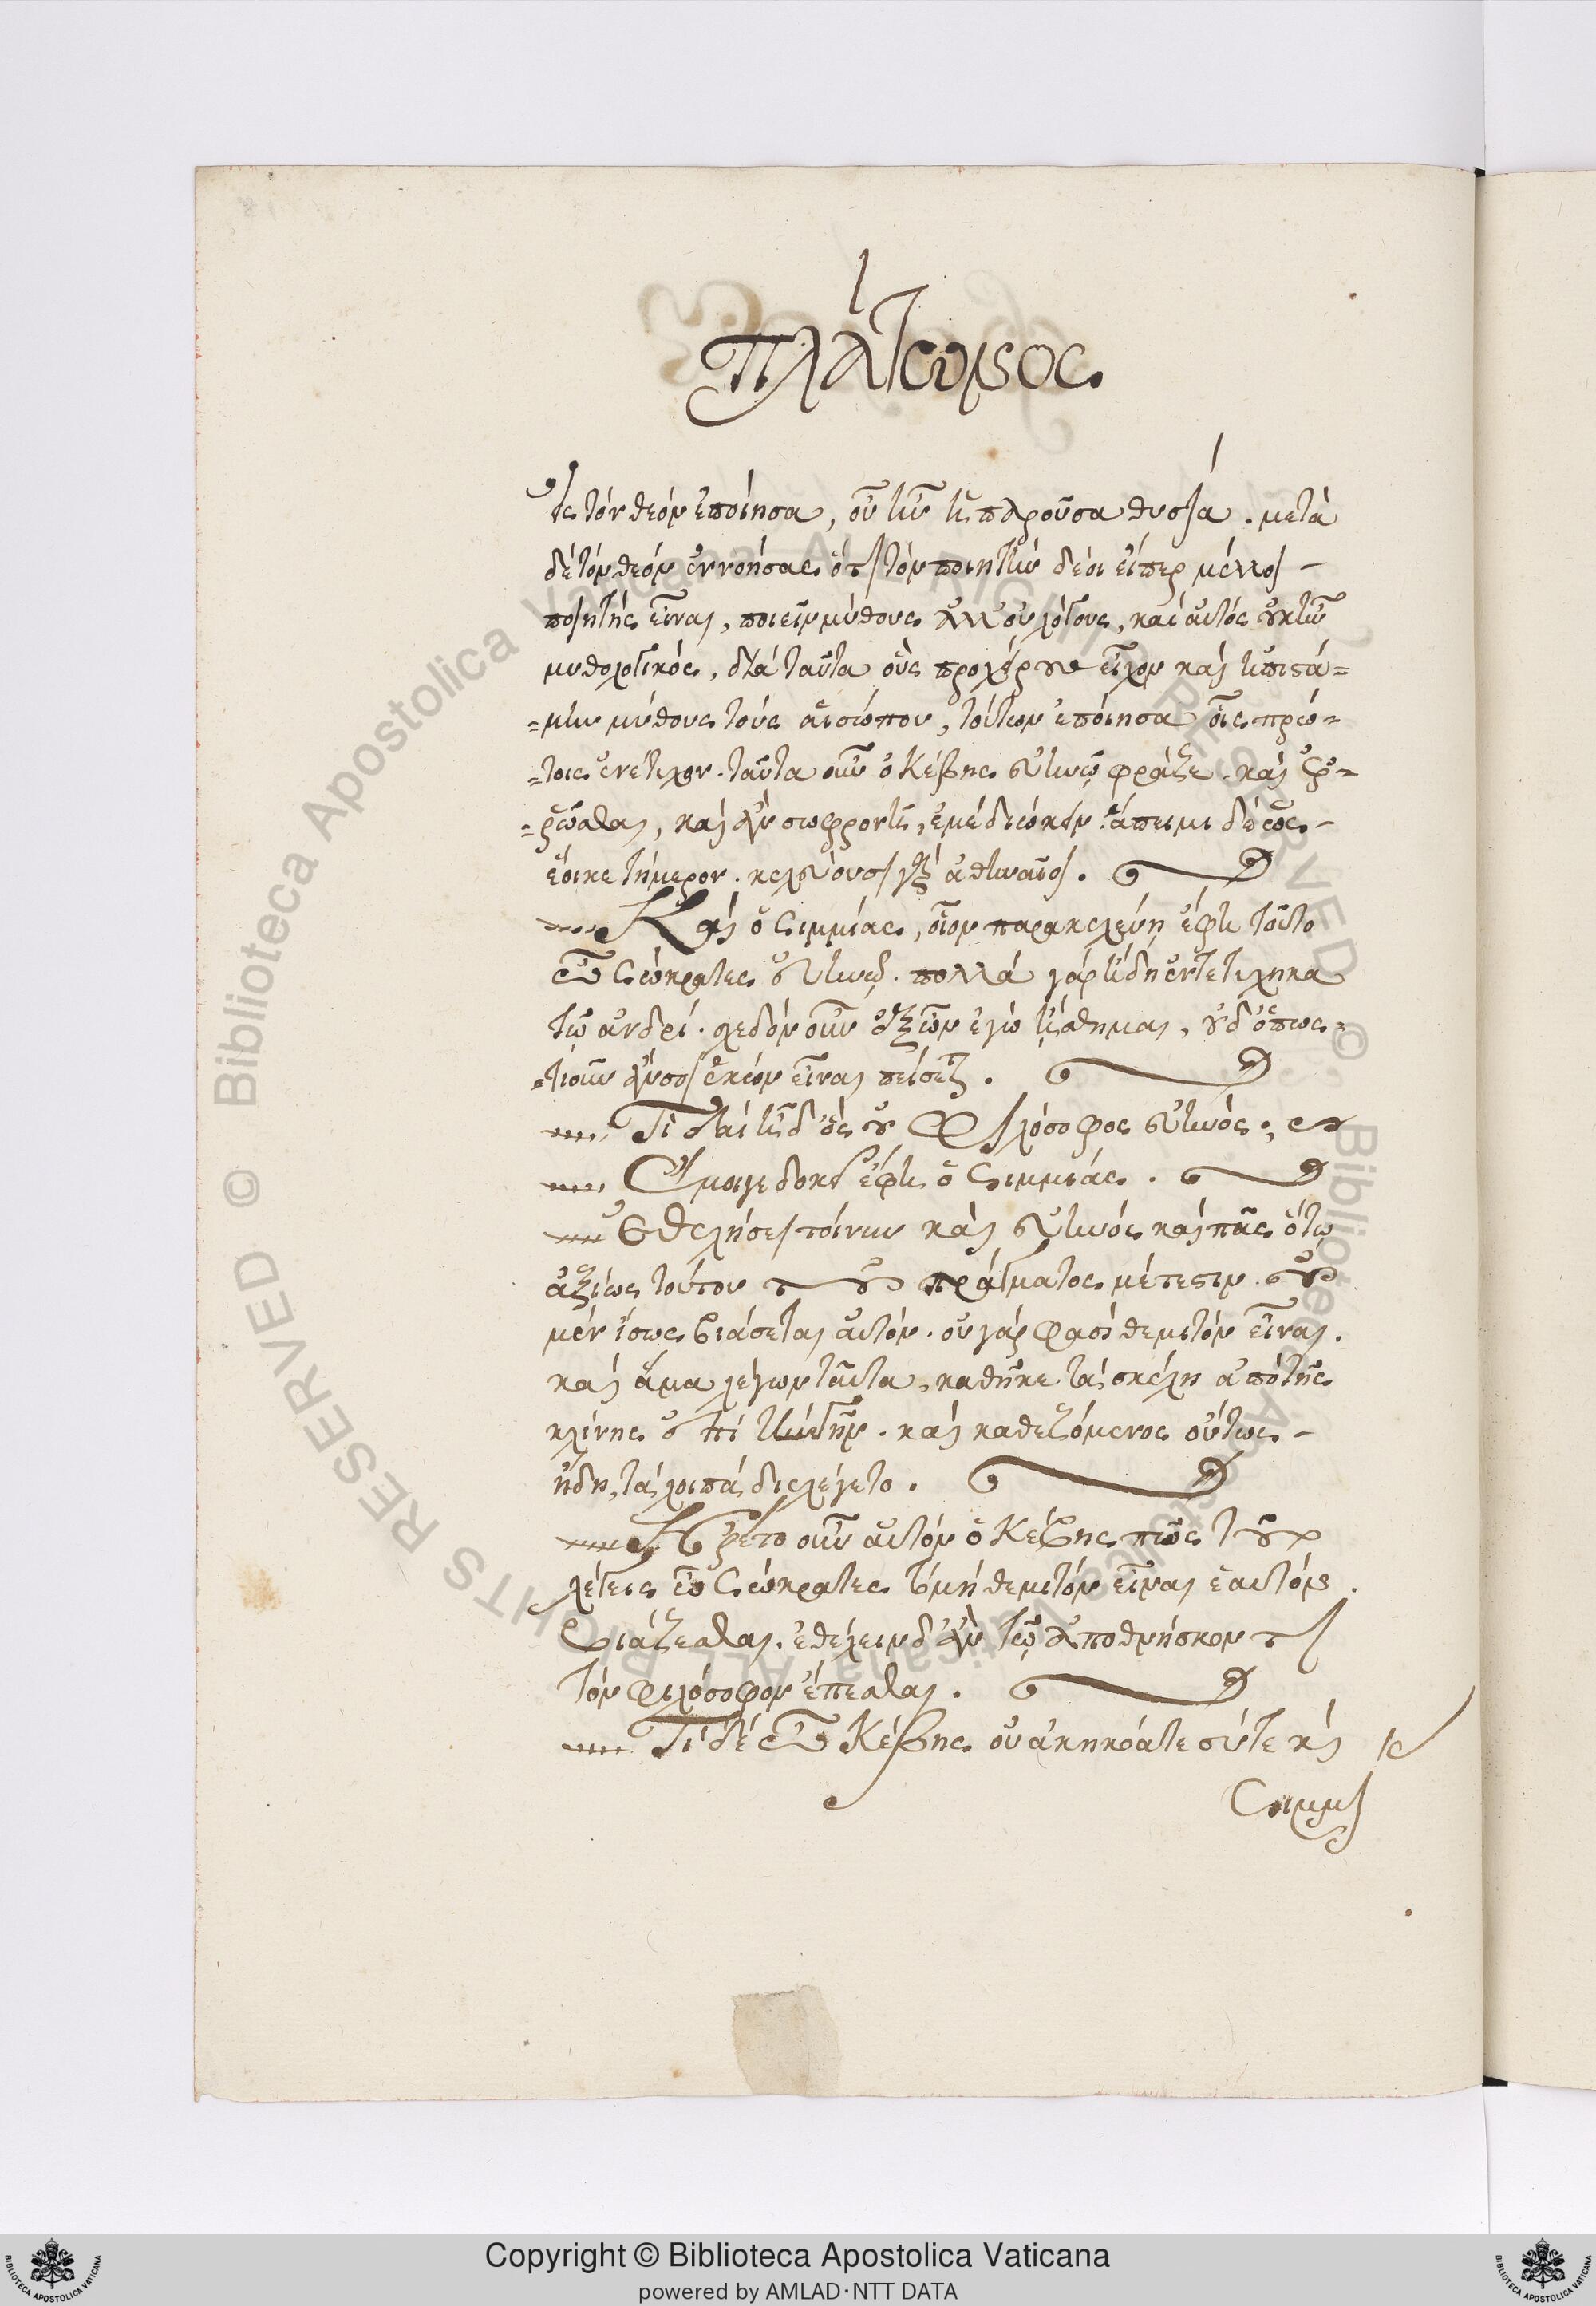 πλάτωνος.
εἰς τὸν θεὸν ἐποίησα, οὗ ἦν ἡ παροῦσα θυσία. μετὰ
δὲ τὸν θεὸν ἐννοήσας ὅτι τὸν ποιητὴν δέοι εἴπερ μέλλοι
ποιητὴς εἶναι, ποιεῖν μύθους ἀλλ' οὐ λόγους, καὶ αὐτὸς οὐκ ἦν
μυθολογικός, διὰ ταῦτα οὓς προχείρους εἶχον καὶ ἠπιστά=
=μην μύθους τοὺς αἰσώπου, τούτων ἐποίησα οἷς πρώ=
=τοις ἐνέτυχον. ταῦτα οὖν ὦ Κέβης εὐήνῳ φράζε. καὶ ἐρ=
=ρῶσθαι, καὶ ἂν σωφρονῇ, ἐμὲ διώκειν. ἄπειμι δὲ ὡς
ἔοικε τήμερον. κελεύουσι γὰρ ἀθηναῖοι.
Καὶ ὁ Σιμμίας, οἷον παρακελεύῃ ἔφη τοῦτο
ὦ Σώκρατες εὐήνῳ. πολλὰ γὰρ ἤδη ἐντετύχηκα
τῷ ἀνδρί. σχεδὸν οὖν ἐξ ὧν ἐγὼ ᾔσθημαι, οὐδ' ὁπωσ=
=τιοῦν ἄν σοι ἑκὼν εἶναι πείσεται.
Τί δαί ἦ δ' ὃς οὐ Φιλόσοφος εὔηνος;
Ἔμοιγε δοκεῖ ἔφη ὁ Σιμμίας.
Ἐθελήσει τοίνυν καὶ εὔηνος καὶ πᾶς ὅτῳ
ἀξίως τούτου τοῦ πράγματος μέτεστιν. οὐ
μὲν ἴσως βιάσεται αὑτόν. οὐ γάρ φασι θεμιτὸν εἶναι.
καὶ ἅμα λέγων ταῦτα, καθῆκε τὰ σκέλη ἀπὸ τῆς
κλίνης ἐπὶ τὴν γῆν. καὶ καθεζόμενος οὕτως
ἤδη, τὰ λοιπὰ διελέγετο.
Ἤρετο οὖν αὐτὸν ὁ Κέβης πῶς τοῦτο
λέγεις ὦ Σώκρατες τὸ μὴ θεμιτὸν εἶναι ἑαυτὸν
βιάζεσθαι. ἐθέλειν δ' ἂν τῷ ἀποθνήσκοντι
τὸν φιλόσοφον ἕπεσθαι.
Τί δὲ ὦ Κέβης οὐκ ἀκηκόατε σύ τε καὶ
Σιμμί
Copyright © Biblioteca Apostolica Vaticana
powered by AMLAD·NTT DATA